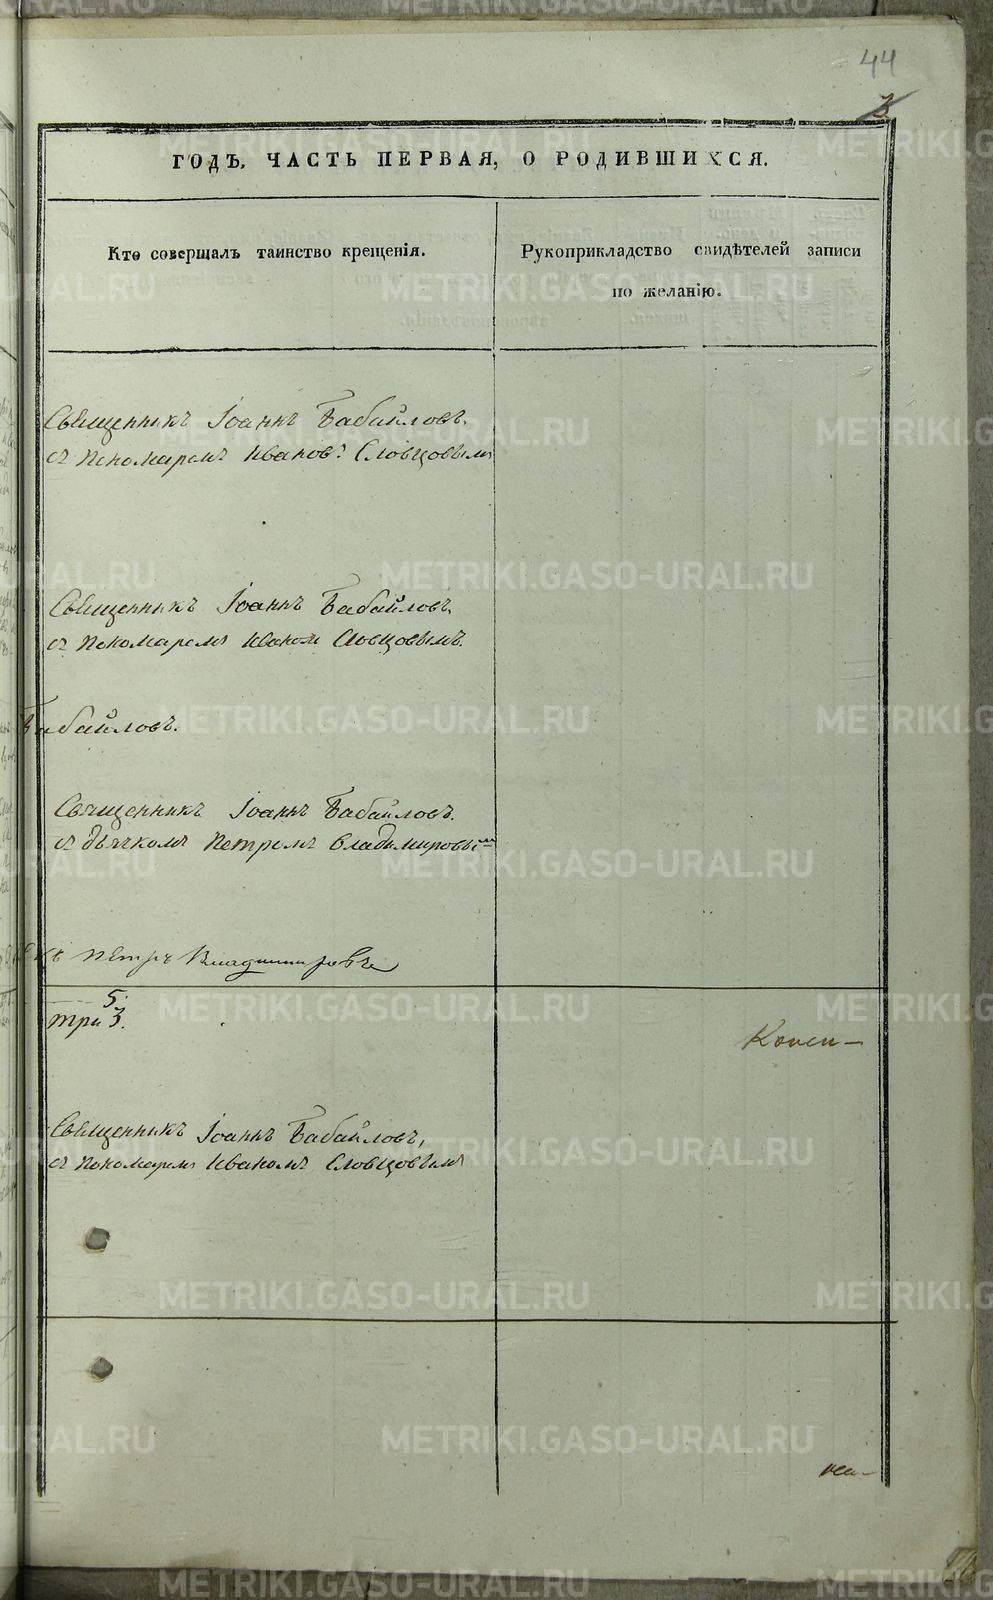 44
3
ГОДЪ, ЧАСТЬ ПЕРВАЯ, О РОДИВШИХСЯ.
Кто совершалъ таинство крещенія.
Рукоприкладство свидѣтелей записи
по желанію.
Священникъ Іоаннъ Бабайловъ,
съ пономаремъ Иваномъ Словцовымъ
Священникъ Іоаннъ Бабайловъ,
съ пономаремъ Иваном Словцовымъ.
Бабайловъ.
Священникъ Іоаннъ Бабайловъ.
съ дьячкомъ Петромъ Владимировым
Петръ Владимировъ
5.
три 3.
Священникъ Іоаннъ Бабайловъ,
съ пономаремъ Иваномъ Словцовымъ
METRIKI.GASO-URAL.RU